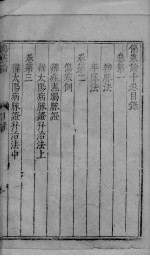 傷寒論十卷目錄
卷第一
辨脉法
平脉法
卷第二
傷寒例
辨痓濕暍脉證
辨太陽病脉證并治法上
卷第三
辨太陽病脉證并治法中